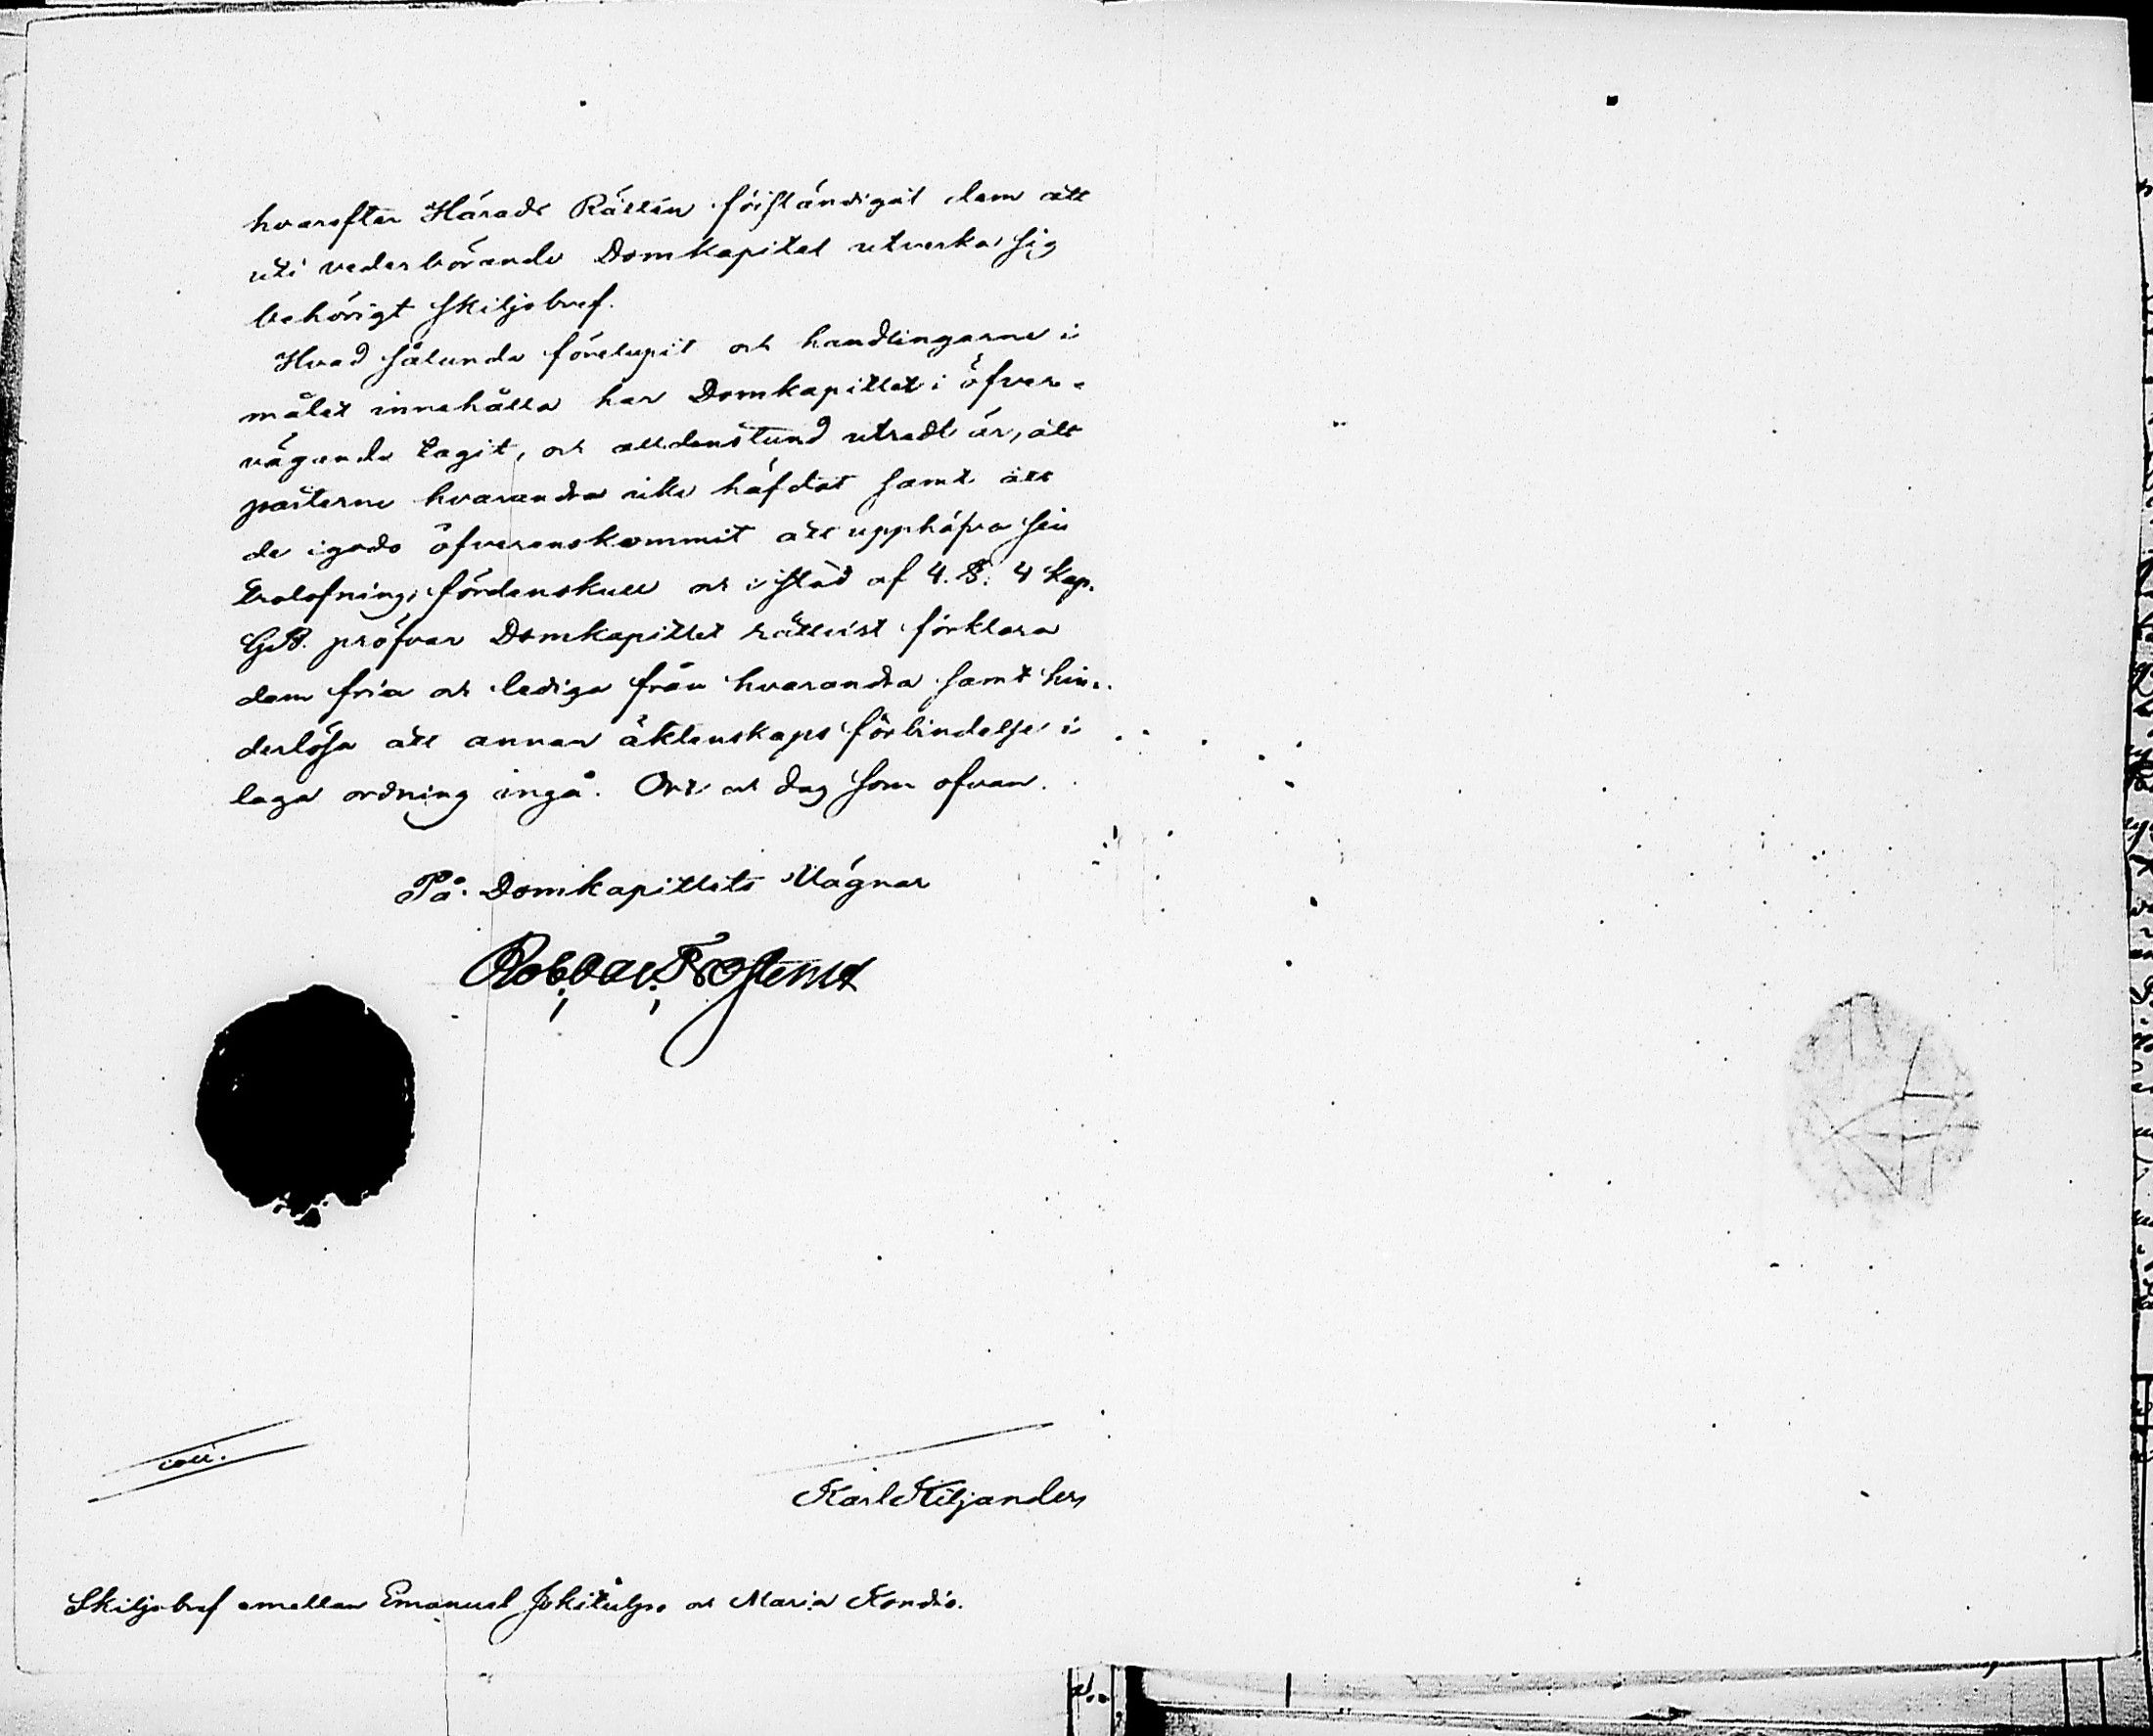 hvarefter Härads Rätten förständigat dem att
uti vederbörande Domkapitel utverka sig
behörigt skiljobref.
Hvad sålunda förelupit och handlingarne i
målet innehålla har Domkapitlet i öfver-
vägande tagit, och alldenstund utredt är, att
parterne hvarandra icke häfdat samt att
de i godo öfverenskommit att upphäfva sin
trolofning, fördenskull och i stöd af 4. §. 4 Kap.
G.B. pröfvar Domkapitlet rättvist förklara
dem fria och lediga från hvarandra samt hin-
derlösa att annan äktenskaps förbindelse i
laga ordning ingå. Ort och dag som ofvan.
På Domkapitlets Vägnar
Rob. Val. Frosterus
coll.
Karl Kiljander
Skiljobref emellan Emanuel Jokitulppo och Maria Kondio.